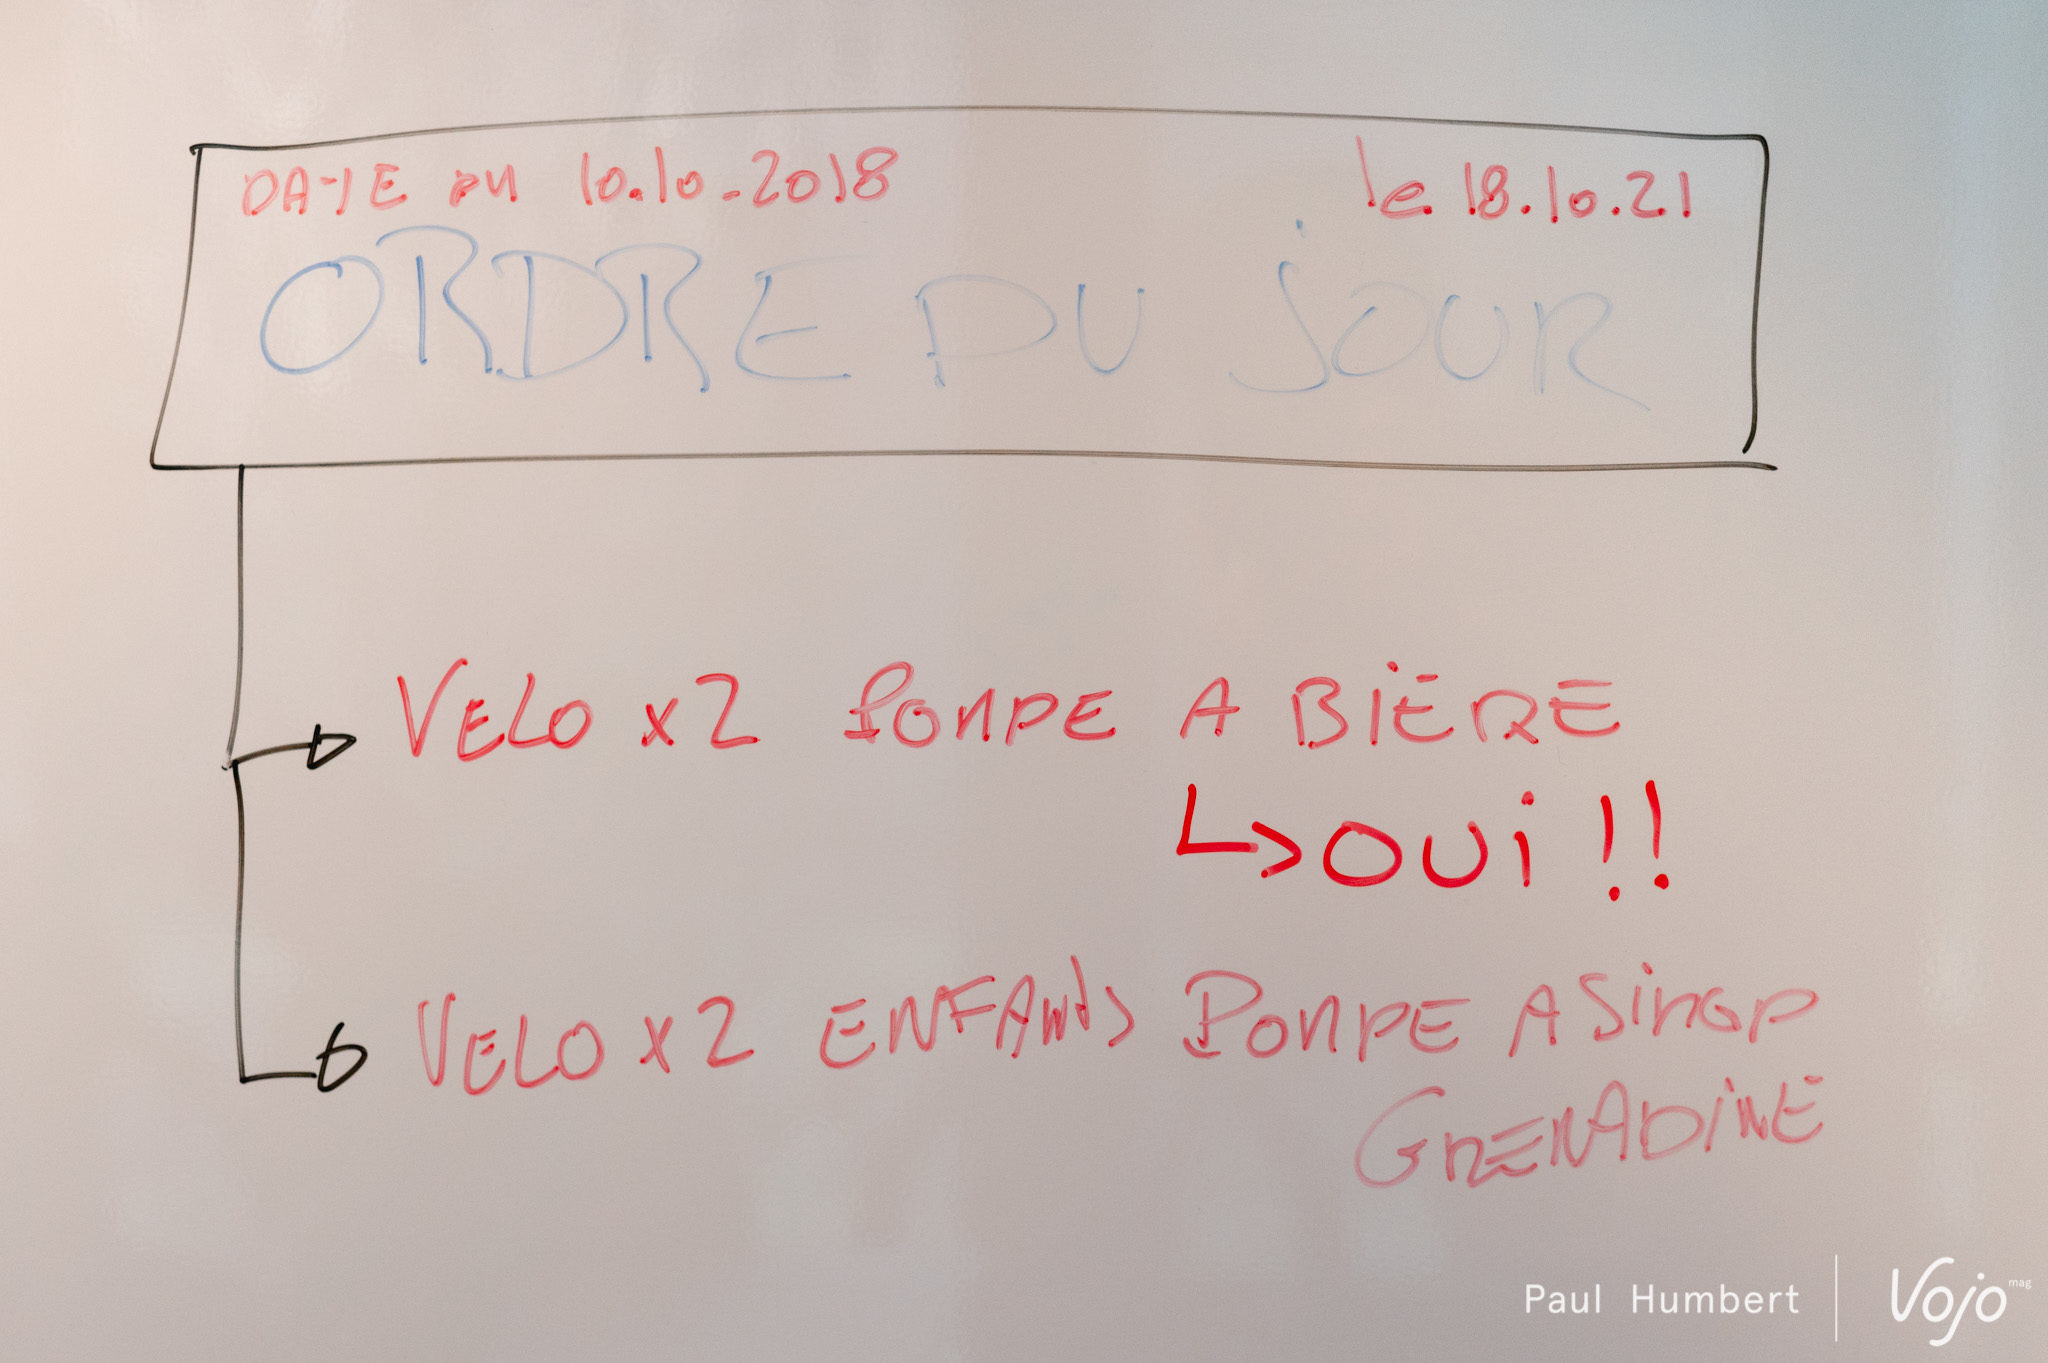 DATE DU 10.10.2018 le 18.10.21
ORDRE DU JOUR
VELO x2 POMPE A BIÈRE
OUI !!
VELO x2 ENFANTS POMPE A SIROP
GRENADINE
Paul Humbert | Vojo mag